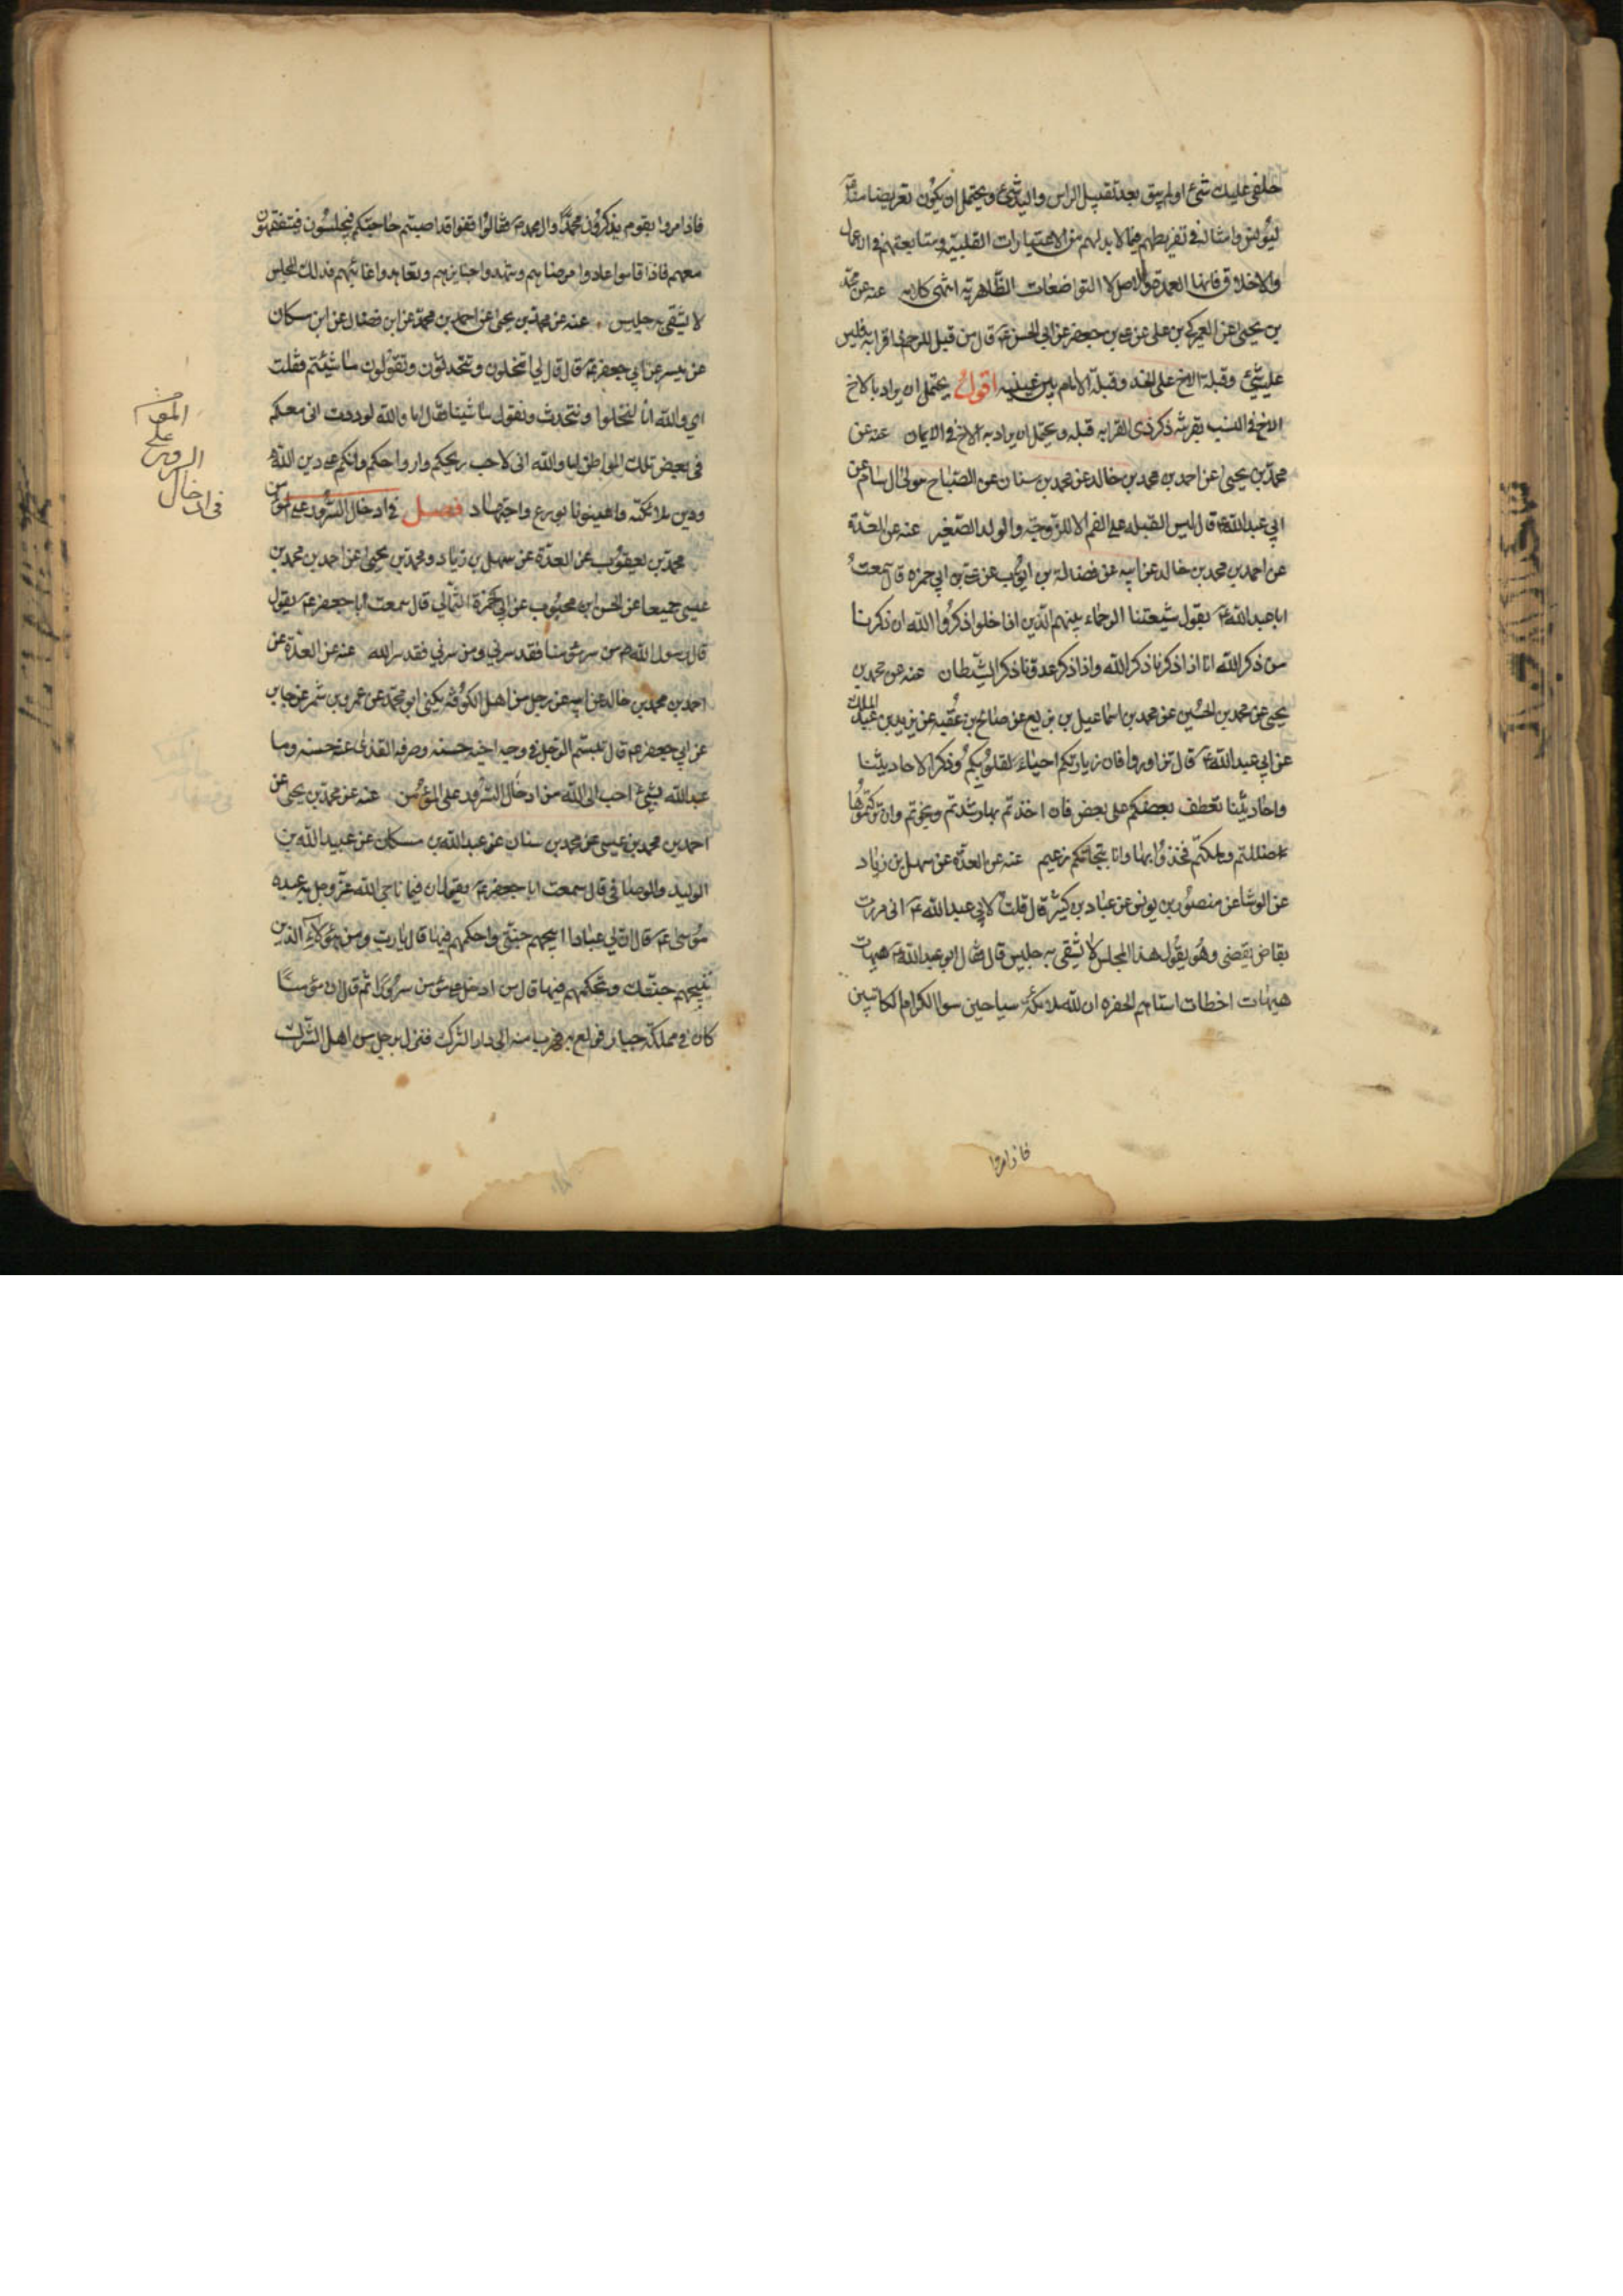 حلفي عليك شئ او لم يبق بعد تقبيل الراس واليد شئ ويحتمل ان يكون تعريضا
ليونس وامثاله في تفريطهم فيما لا بد لهم من الاعتبارات القلبية ومتابعتهم في الاعمال
والاخلاق فانها العمدة والاصل لا التواضعات الظاهرية انتهى كلامه عنه عن محمد
بن يحيى عن العمركي بن علي عن علي بن جعفر عن ابي الحسن ع قال من قبل للرحم ذا قرابة فليس
عليه شئ وقبلة الاخ على الخد وقبلة الامام بين عينيه اقول يحتمل ان يراد بالاخ
الاخ في النسب بقرينة ذكر ذي القرابه قبله ويحتمل ان يراد به الاخ في الايمان عنه عن
محمد بن يحيى عن احمد بن محمد بن خالد عن محمد بن سنان عن الصباح مولى ال سام عن
ابي عبد الله ع قال ليس القبلة على الفم الا للزوجة والولد الصغير عنه عن العدة
عن احمد بن محمد بن خالد عن ابيه عن فضالة بن ايوب عن علي بن ابي حمزه قال سمعت
ابا عبد الله ع يقول شيعتنا الرحماء بينهم الذين اذا خلوا ذكروا الله ان ذكرنا
من ذكر الله انا اذا ذكرنا ذكر الله واذا ذكر عدونا ذكر الشيطان عنه عن محمد بن
يحيى عن محمد بن الحسين عن محمد بن اسماعيل بن بزيع عن صالح بن عقبه عن يزيد بن عبد الملك
عن ابي عبد الله ع قال تزاوروا فان زيارتكم احياء لقلوبكم وذكرا لاحاديثنا
واحاديثنا تعطف بعضكم على بعض فان اخذتم بها رشدتم ونجوتم وان تركتموها
ضللتم وهلكتم فخذوا بها وانا بنجاتكم زعيم عنه عن العدة عن سهل بن زياد
عن الوشا عن منصور بن يونس عن عباد بن كثير قال قلت لابي عبد الله ع اني مررت
بقاص يقص وهو يقول هذا المجلس لا يشقى به جليس قال فقال ابو عبد الله ع هيهات
هيهات اخطات استاههم الحفره ان لله ملائكة سياحين سوا الكرام الكاتبين
فاذا مروا
فاذا مروا بقوم يذكرون محمدا وال محمد ص فقالوا قفوا قد اصبتم حاجتكم فيجلسون فيتفقهون
معهم فاذا قاموا عادوا مرضاهم وشهدوا جنايزهم وتعاهدوا غائبهم فذلك المجلس
لا يشقى به جليس عنه عن محمد بن يحيى عن احمد بن محمد عن ابن فضال عن ابن مسكان
عن ميسر عن ابي جعفر ع قال قال لي اتخلون وتتحدثون وتقولون ما شئتم فقلت
اي والله انا لنخلوا ونتحدث ونقول ما شئنا فقال اما والله لوددت اني معكم
في بعض تلك المواطن اما والله اني لاحب ريحكم وارواحكم وانكم على دين الله
ودين ملائكته فاعينونا بورع واجتهاد فصل في ادخال السرور على المؤمن
محمد بن يعقوب عن العدة عن سهل بن زياد ومحمد بن يحيى عن احمد بن محمد بن
عيسى جميعا عن الحسن ابن محبوب عن ابي حمزة الثمالي قال سمعت ابا جعفر ع يقول
قال رسول الله ص من سر مؤمنا فقد سرني ومن سرني فقد سر الله عنه عن العدة عن
احمد بن محمد بن خالد عن ابيه عن رجل من اهل الكوفه يكنى ابو محمد عن عمرو بن شمر عن جابر
عن ابي جعفر ع قال تبسم الرجل في وجه اخيه حسنه وصرفه القذى عنه حسنه وما
عبد الله بشئ احب الى الله من ادخال السرور على المؤمن عنه عن محمد بن يحيى عن
احمد بن محمد بن عيسى عن محمد بن سنان عن عبد الله بن مسكان عن عبيد الله بن
الوليد والوصافي قال سمعت ابا جعفر ع يقول ان فيما ناجى الله عز وجل به عبده
موسى ع قال ان لي عبادا ابيحهم جنتي واحكمهم فيها قال يا رب ومن هؤلاء الذين
تبيحهم جنتك وتحكمهم فيها قال من ادخل على مؤمن سرورا ثم قال ان مؤمنا
كان في مملكة جبار فولع به فهرب منه الى دار الشرك فنزل برجل من اهل الشرك
في ادخال
السرور
على
المؤمن